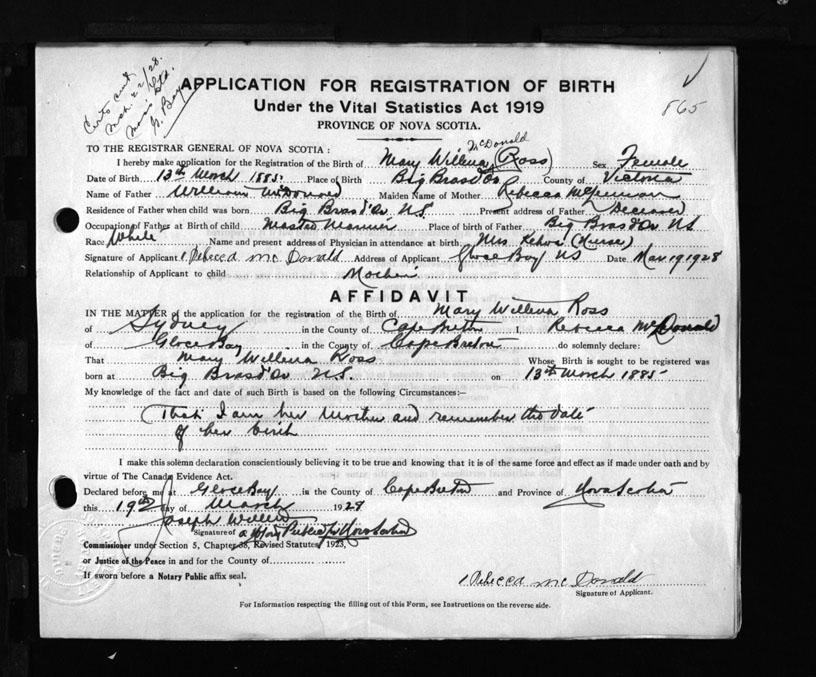 Certs sent
Mch. 22/28.
G. Bay
865
APPLICATION FOR REGISTRATION OF BIRTH
Under the Vital Statistics Act 1919
PROVINCE OF NOVA SCOTIA.
TO THE REGISTRAR GENERAL OF NOVA SCOTIA :
McDonald
I hereby make application for the Registration of the Birth of Mary Willena (Ross) Sex Female
Date of Birth 13th March 1885. Place of Birth Big Bras d'Or County of Victoria
Name of Father William McDonald Maiden Name of Mother Rebecca
Residence of Father when child was born Big Bras d'Or N.S. Present address of Father Deceased
Occupation of Father at Birth of child Master Mariner Place of birth of Father Big Bras d'Or N.S
Race White Name and present address of Physician in attendance at birth Mrs. Kehoe (Nurse)
Signature of Applicant Rebecca Mc Donald Address of Applicant Glace Bay NS Date Mar. 19, 1928
Relationship of Applicant to child Mother
AFFIDAVIT
IN THE MATTER of the application for the registration of the Birth of Mary Willena Ross
of Sydney in the County of Cape Breton I, Rebecca McDonald
of Glace Bay in the County of Cape Breton do solemnly declare:
That Mary Willena Ross Whose Birth is sought to be registered was
born at Big Bras d'Or N.S. on 13th March 1885
My knowledge of the fact and date of such Birth is based on the following Circumstances:—
(That I am her Mother and remember the date
of her birth
I make this solemn declaration conscientiously believing it to be true and knowing that it is of the same force and effect as if made under oath and by
virtue of The Canada Evidence Act.
Declared before me at Glace Bay in the County of Cape Breton and Province of Nova Scotia
this 19th day of March 1928
Joseph
Signature of a Notary Public for Nova Scotia
Commissioner under Section 5, Chapter 38, Revised Statutes 1923,
or Justice of the Peace in and for the County of
If sworn before a Notary Public affix seal.
Rebecca Mc Donald
Signature of Applicant.
For Information respecting the filling out of this Form, see Instructions on the reverse side.